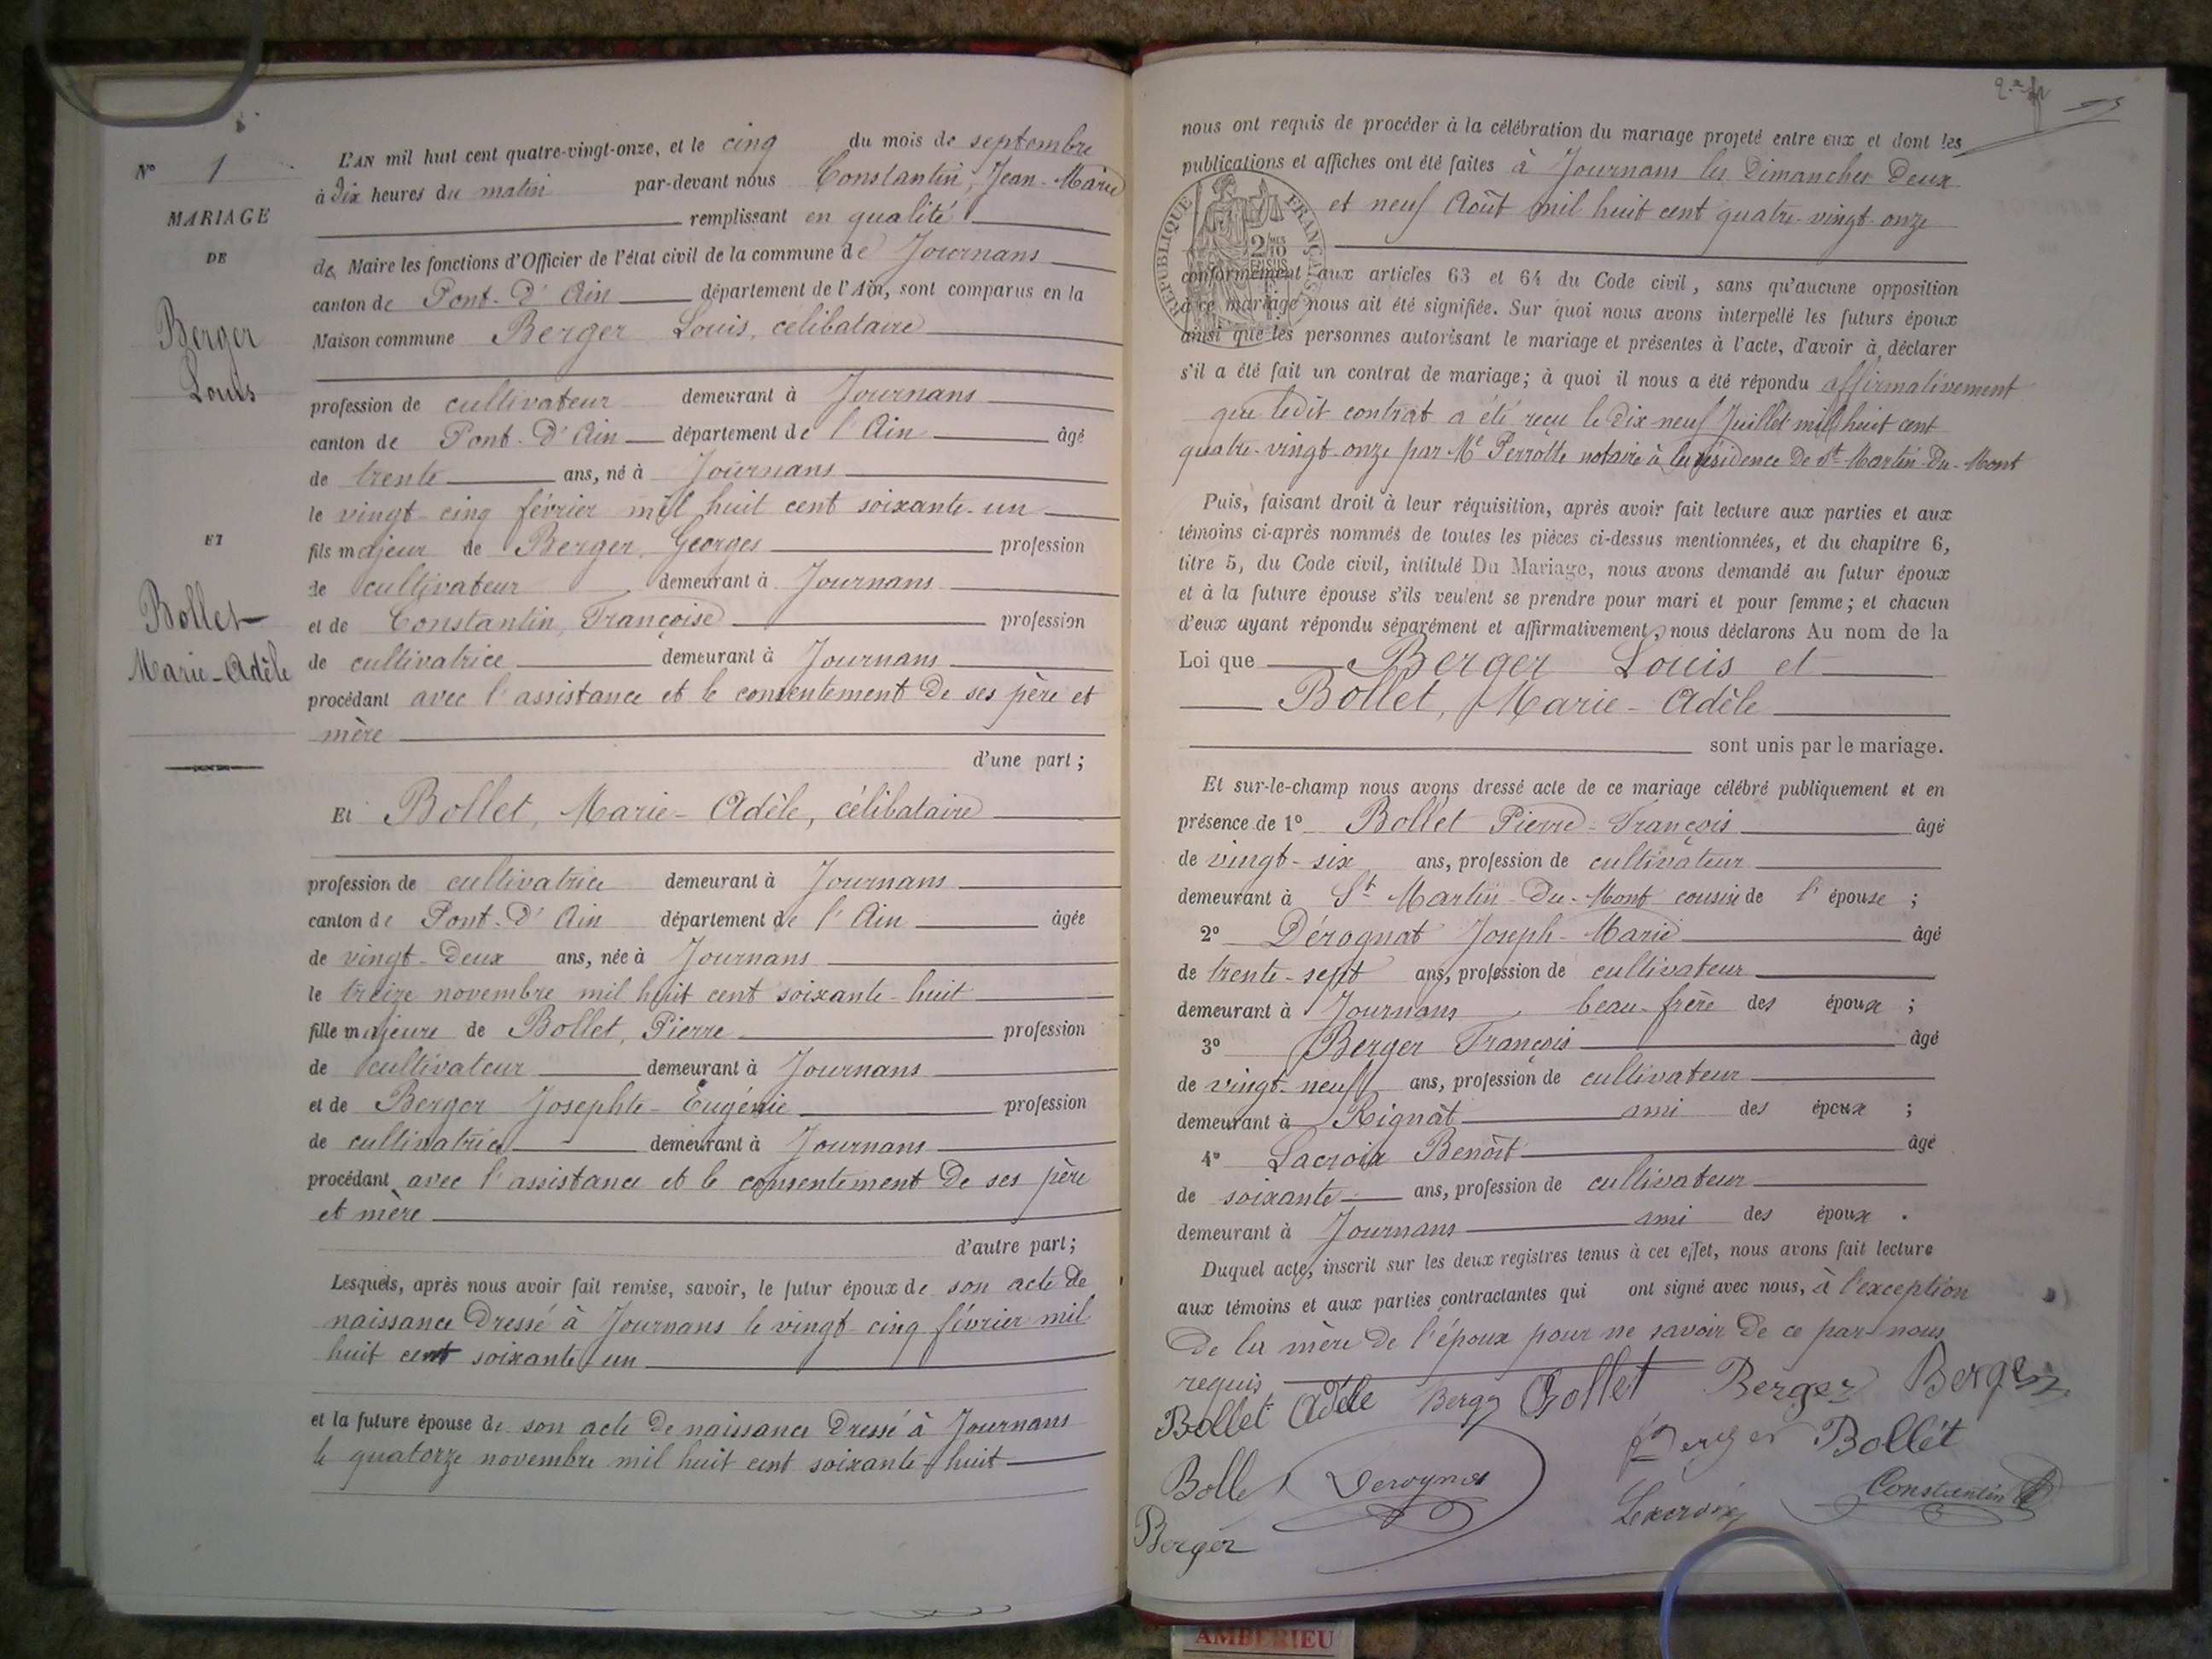 N° 1
MARIAGE
DE
Berger
Louis
ET
Bollet
Marie-Adèle
L'AN mil huit cent quatre-vingt-onze, et le cinq du mois de septembre
à dix heures du matin par-devant nous Constantin, Jean-Marie
remplissant en qualité
de Maire les fonctions d'Officier de l'état civil de la commune de Journans
canton de Pont-d'Ain département de l'Ain, sont comparus en la
Maison commune Berger Louis, celibataire
profession de cultivateur demeurant à Journans
canton de Pont-d'Ain département de l'Ain âgé
de trente ans, né à Journans
le vingt-cinq février mil huit cent soixante-un
fils majeur de Berger, Georges profession
de cultivateur demeurant à Journans
et de Constantin, Françoise profession
de cultivatrice demeurant à Journans
procédant avec l'assistance et le consentement de ses père et
mère
d'une part;
Et Bollet, Marie-Adèle, célibataire
profession de cultivatrice demeurant à Journans
canton de Pont-d'Ain département de l'Ain âgée
de vingt-deux ans, née à Journans
le treize novembre mil huit cent soixante-huit
fille majeure de Bollet, Pierre profession
de cultivateur demeurant à Journans
et de Berger Josephte-Eugénie profession
de cultivatrice demeurant à Journans
procédant avec l'assistance et le consentement de ses père
et mère
d'autre part;
Lesquels, après nous avoir fait remise, savoir, le futur époux de son acte de
naissance dressé à Journans le vingt-cinq février mil
huit cent soixante-un
et la future épouse de son acte de naissance dressé à Journans
le quatorze novembre mil huit cent soixante-huit
nous ont requis de procéder à la célébration du mariage projeté entre eux et dont les
publications et affiches ont été faites à Journans les dimanches deux
et neuf Août mil huit cent quatre-vingt-onze
RÉPUBLIQUE FRANÇAISE
conformément aux articles 63 et 64 du Code civil, sans qu'aucune opposition
à ce mariage nous ait été signifiée. Sur quoi nous avons interpellé les futurs époux
ainsi que les personnes autorisant le mariage et présentes à l'acte, d'avoir à déclarer
s'il a été fait un contrat de mariage; à quoi il nous a été répondu affirmativement
que ledit contrat a été reçu le dix-neuf Juillet mil huit cent
quatre-vingt-onze par Me Perrotte notaire à la résidence de St-Martin-du-Mont
Puis, faisant droit à leur réquisition, après avoir fait lecture aux parties et aux
témoins ci-après nommés de toutes les pièces ci-dessus mentionnées, et du chapitre 6,
titre 5, du Code civil, intitulé Du Mariage, nous avons demandé au futur époux
et à la future épouse s'ils veulent se prendre pour mari et pour femme; et chacun
d'eux ayant répondu séparément et affirmativement, nous déclarons Au nom de la
Loi que Berger Louis et
Bollet, Marie-Adèle
sont unis par le mariage.
Et sur-le-champ nous avons dressé acte de ce mariage célébré publiquement et en
présence de 1° Bollet Pierre-François âgé
de vingt-six ans, profession de cultivateur
demeurant à St Martin-du-Mont cousin de l'épouse;
2° Dérognat Joseph-Marie âgé
de trente-sept ans, profession de cultivateur
demeurant à Journans beau-frère des époux;
3° Berger François âgé
de vingt-neuf ans, profession de cultivateur
demeurant à Rignat ami des époux;
4° Lacroix Benoît âgé
de soixante ans, profession de cultivateur
demeurant à Journans ami des époux.
Duquel acte, inscrit sur les deux registres tenus à cet effet, nous avons fait lecture
aux témoins et aux parties contractantes qui ont signé avec nous, à l'exception
de la mère de l'époux pour ne savoir de ce par nous
requis
Bollet Adèle Berger Bollet Berger Berger
Berger Bollét
Bollet
Lacroix Constantin
Berger
AMBERIEU